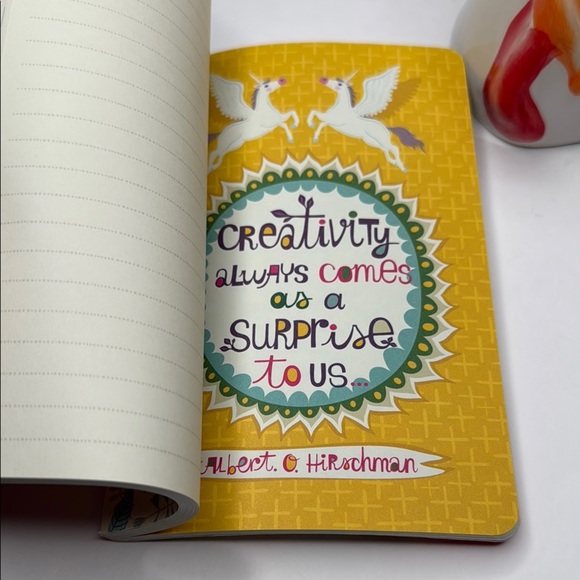 Creativity
always comes
as a
surprise
to us...
Albert. O Hirschman